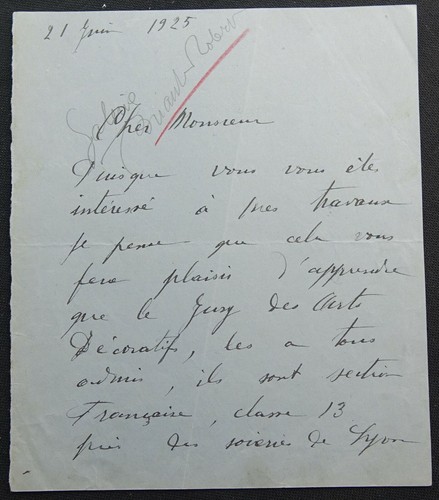 21 Juin 1925
Galerie
Briant-Robert
Cher Monsieur
Puisque vous vous êtes
intéressé à mes travaux
je pense que cela vous
fera plaisir d'apprendre
que le Jury des Arts
Décoratifs, les a tous
admis, ils sont section
Française, classe 13
près des soieries de Lyon